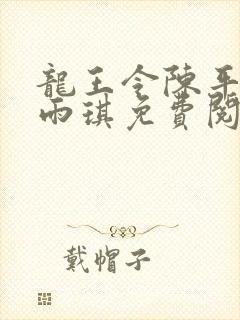 龍王令陳平
雨琪免費閱
戴帽子